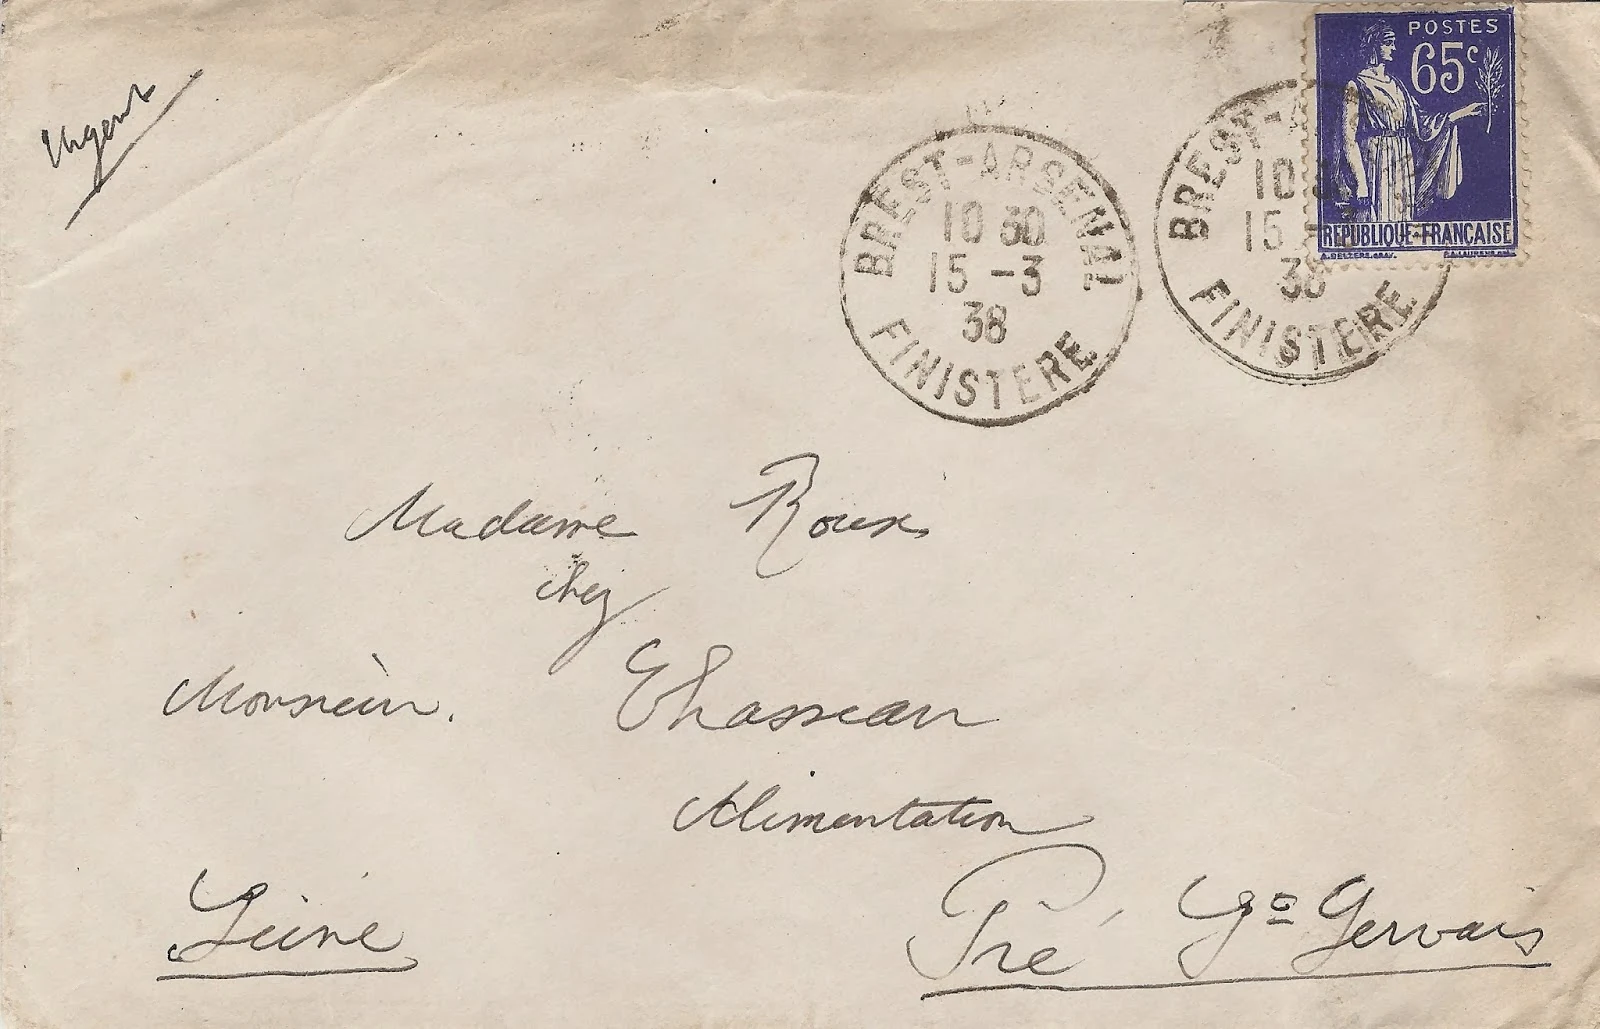 Urgent
POSTES
65c
REPUBLIQUE-FRANÇAISE
BREST-ARSENAL
10 30
15 -3
38
FINISTERE
BREST-A
10 3
15 -
38
FINISTERE
Madame Roux
chez
Monsieur. Chasseau
Alimentation
Pré Gervais
Seine